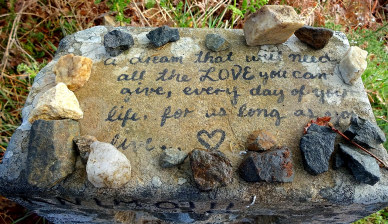 a dream that will need
all the LOVE you can
give, every day of your
life, for as long as you
live... ♡